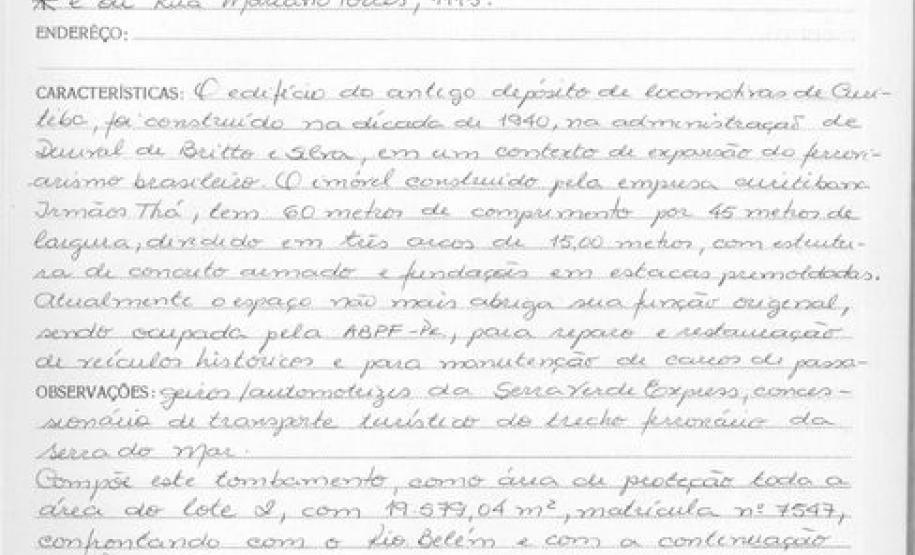 * e ou Rua Mariano Torres,
ENDERÊÇO:
CARACTERÍSTICAS: O edifício do antigo depósito de locomotivas de Curi-
tiba, foi construído na década de 1940, na administração de
Durval de Britto e Silva, em um contexto de expansão do ferrovi-
arismo brasileiro. O imóvel construído pela empresa curitibana
Irmãos Thá, tem 60 metros de comprimento por 45 metros de
largura, dividido em três arcos de 15,00 metros, com estrutu-
ra de concreto armado e fundações em estacas premoldadas.
Atualmente o espaço não mais abriga sua função original,
sendo ocupada pela ABPF-Pr, para reparo e restauração
de veículos históricos e para manutenção de carros de passa-
OBSERVAÇÕES: geiros/automotrizes da Serra Verde Express, conces-
sionária de transporte turístico do trecho ferroviário da
Serra do Mar.
Compõe este tombamento, como área de proteção toda a
área do lote 2, com 19.579,04 m², matrícula nº 7547,
confrontando com o Rio Belém e com a continuação